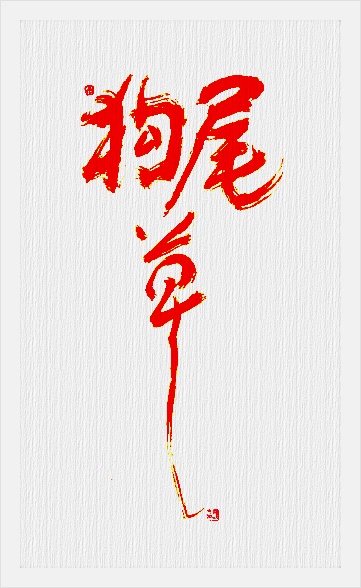 狗尾
草